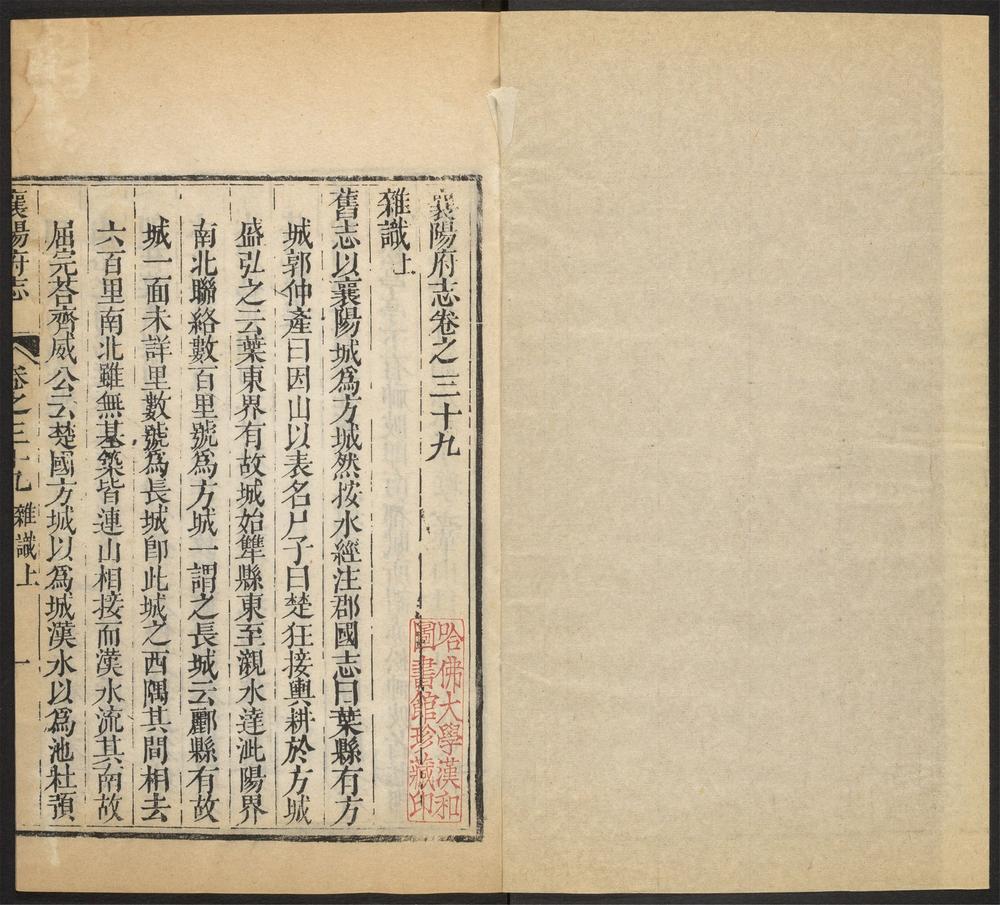 襄陽府志卷之三十九
雜識上
舊志以襄陽城爲方城然按水經注郡國志曰葉縣有方
城郭仲產曰因山以表名尸子曰楚狂接輿耕於方城
盛弘之云葉東界有故城始犨縣東至瀙水達沘陽界
南北聯絡數百里號爲方城一謂之長城云酈縣有故
城一面未詳里數號爲長城卽此城之西隅其間相去
六百里南北雖無基築皆連山相接而漢水流其南故
屈完荅齊威公云楚國方城以爲城漢水以爲池杜預
襄陽府志 卷之三十九 雜識上 一
哈佛大學漢和
圖書館珍藏印